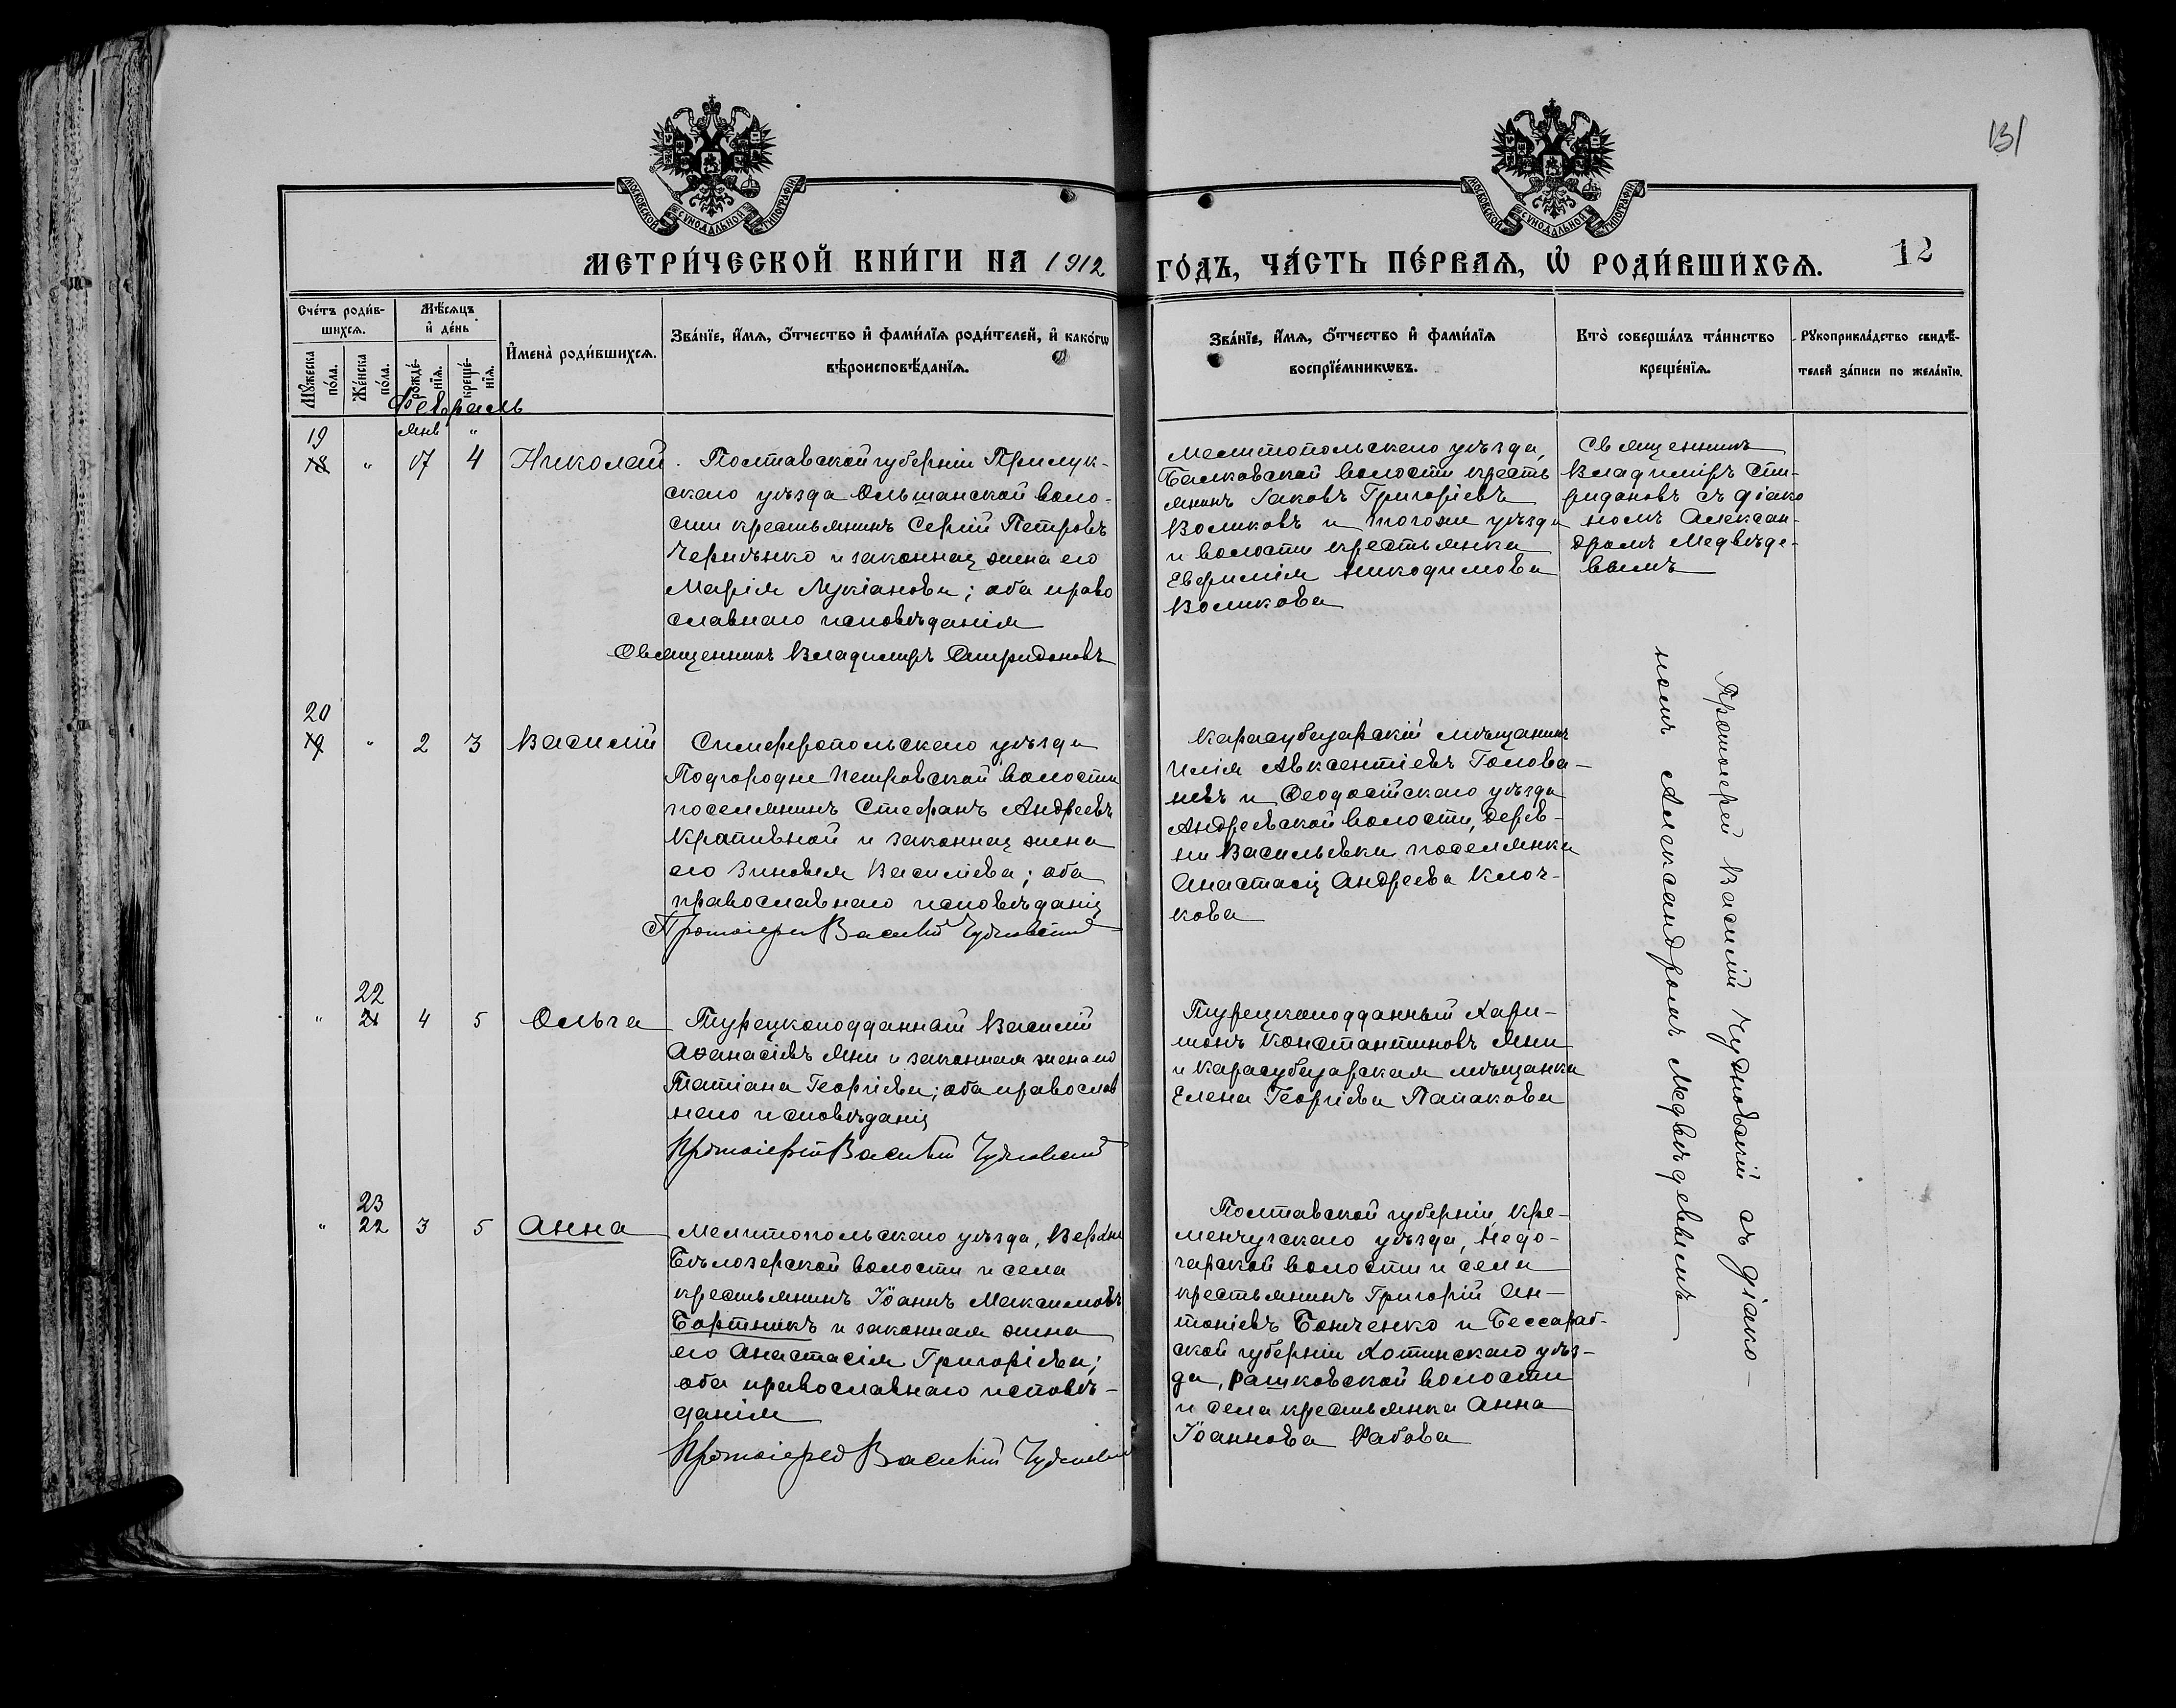 131
МОСКОВСКОЙ СѴНОДАЛЬНОЙ ТИПОГРАФІИ
МОСКОВСКОЙ СѴНОДАЛЬНОЙ ТИПОГРАФІИ
МЕТРИ́ЧЕСКОЙ КНИ́ГИ НА 1912
ГО́ДЪ, ЧА́СТЬ ПЕ́РВАѦ, Ѡ РОДИ́ВШИХСѦ.
12
Сче́тъ роди́в-
шихсѧ.
Мѣ́сѧцъ
и҆ де́нь
Мꙋ́жеска
по́ла.
Же́нска
по́ла.
рожде́-
нїѧ.
креще́-
нїѧ.
И҆мена̀ роди́вшихсѧ.
Зва́нїе, и҆́мѧ, ѻ҆́тчество и҆ фами́лїѧ роди́телей, и҆ како́гѡ
вѣроисповѣ́данїѧ.
Зва́нїе, и҆́мѧ, ѻ҆́тчество и҆ фами́лїѧ
воспрїе́мникѡвъ.
Кто̀ соверша́лъ та́инство
креще́нїѧ.
Рꙋкоприкла́дство свидѣ́-
телей за́писи по жела́нїю.
Февраль
Янв "
19
18 " 17 4 Николай
Полтавской губерніи Прилук-
скаго уѣзда Ольшанской воло-
сти крестьянинъ Сергій Петровъ
и законная жена его
Марія Лукіанова; оба право
славнаго исповѣданія
Священникъ Владимиръ Спиридоновъ
Мелитопольскаго уѣзда,
Балковской волости кресть
янинъ Іаковъ Григоріевъ
Воликовъ и тогоже уѣзда
и волости крестьянка
Евфимія Никодимова
Воликова
Священникъ
Владиміръ Спи-
ридоновъ съ діако
номъ Алексан-
дромъ Медвѣде-
вымъ
20
19 " 2 3 Василій
Симферопольскаго уѣзда
Подгородне Петровской волости
поселянинъ Стефанъ Андреевъ
Крапивной и законная жена
его Зиновія Василіева; оба
православнаго исповѣданія
Протоіерей Василій Чудновскій
Карасубазарскій мѣщанинъ
Илія Авксентіевъ Голова-
невъ и Феодосійскаго уѣзда
Андреевской волости, дерев-
ни Васильевки поселянка
Анастасія Андреева Клоч-
кова
22
" 21 4 5 Ольга
Турецкоподданный Василій
Аѳанасіевъ Яни и законная жена его
Татіана Георгіева; оба православ
наго исповѣданія
Протоіерей Василій Чудновскій
Турецкоподданный Хари-
тонъ Константиновъ Яни
и Карасубазарская мѣщанка
Елена Георгіева Папакова
23
" 22 3 5 Анна
Мелитопольскаго уѣзда, Верхне
Бѣлозерской волости и села
крестьянинъ Іоаннъ Максимовъ
Бортникъ и законная жена
его Анастасія Григоріева;
оба православнаго исповѣ-
данія
Протоіерей Василій Чудновскій
Полтавской губерніи, Кре-
менчугскаго уѣзда, Недо-
гарской волости и села
крестьянинъ Григорій Ан-
тоніевъ и Бессараб-
ской губерніи Хотинскаго уѣз-
да, Рашковской волости
и села крестьянка Анна
Іоаннова
Протоіерей Василій Чудновскій съ діако-
номъ Александромъ Медвѣдевымъ